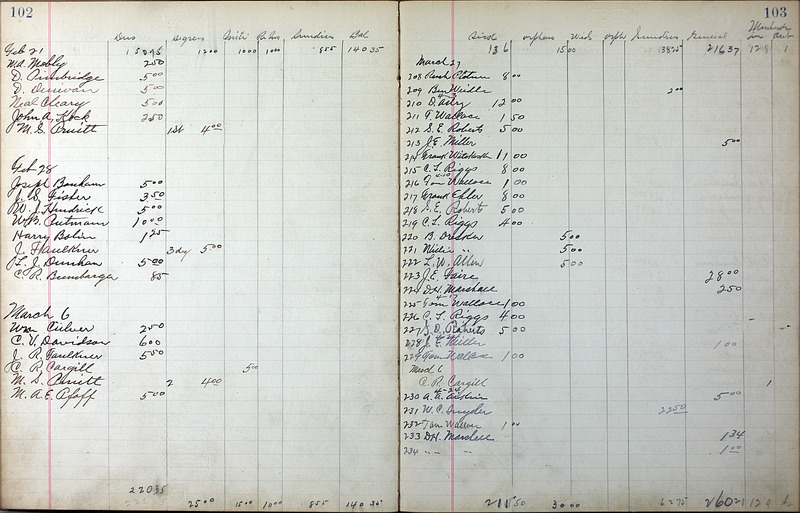 102
Dues Degrees Sundries Bal
Feb 21 15895 1200 1000 1000 855 14035
W.A. Mobly 250
D. Bainbridge 500
D. 500
Neal Cleary 500
John A. Kock 250
M. S. Pruitt 1st 400
Feb 28
Joseph Bonham 500
J. S. Fisher 350
W. J. Hendrick 500
W.B. Putman 1000
Harry Bolin 125
J. Faulkner 3 dg 500
J. Dunhan 500
C. R. Bumbarger 85
March 6
Wm Culver 250
C. V. Davidson 600
J. R. Faulkner 550
C. R. Cargill 500
M. S. Pruitt 2 400
M. A. E. Pfaff 500
22035
2500 1500 1000 855 14035
103
orphans Wid orph Sundries General
136 1500 3825 21637 128 1
March 27
208 800
209 Ben 200
210 D. 1200
211 T. Wallace 150
212 S. E. Roberts 500
213 J.E. Miller 500
214 Frank 1100
215 C. L. Riggs 800
216 Tom Wallace 100
217 Frank Ehler 800
218 S. E. Roberts 500
219 C. L. Riggs 400
220 B. 500
221 " 500
222 L. W. Allen 500
223 J. E. Faire 2800
224 D.H. Marshall 250
225 Tom Wallace 100
226 C. L. Riggs 400
227 J. D. Roberts 500
228 J. E. Miller 100
229 Tom Wallace 100
6
C. R. Cargill 1
230 A. A. 500
231 W. C. Snyder 2250
232 Tom Wallace 100
233 D.H. Marshall 134
234 " " " 100
21150 3000 6275 26021 129